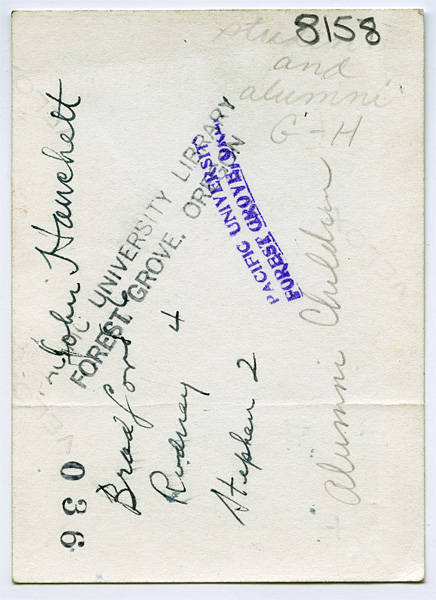 8158
student
and
alumni
G-H
John Hanchett
Bradford 6
Rodney 4
Stephen 2
Alumni Children
UNIVERSITY LIBRARY
FOREST GROVE, OREGON
PACIFIC UNIVERSITY
FOREST GROVE, ORE.
036